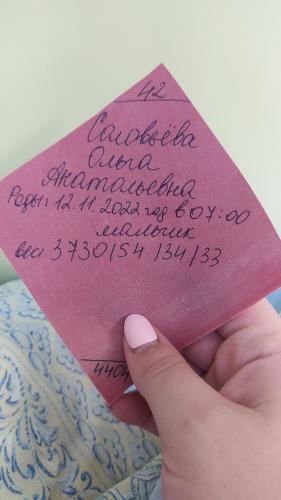 42
Соловьёва
Ольга
Анатольевна
Роды: 12.11.2022 год в 07:00
мальчик
вес 3730/54/34/33
4404